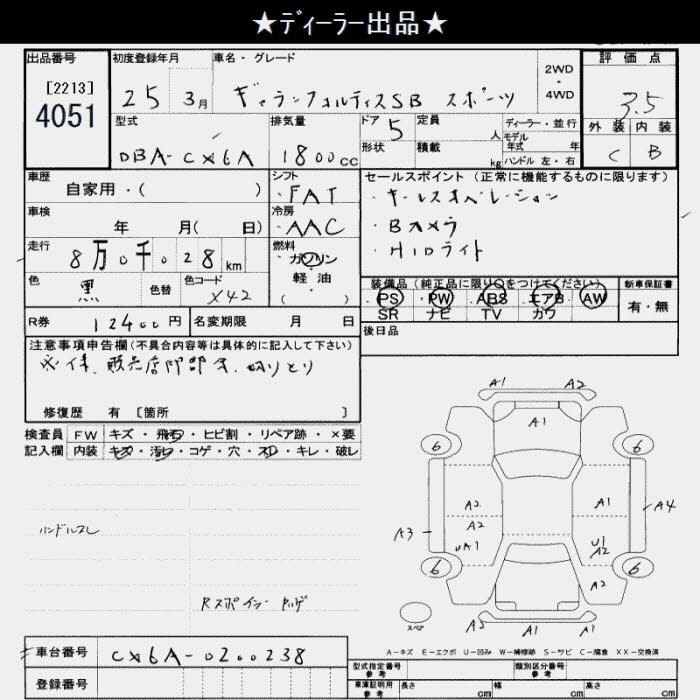 ★ディーラー出品★
出品番号
[2213]
4051
初度登録年月
25 3月
車名・グレード
ギャランフォルティスSB スポーツ
2WD
・
4WD
評価点
3.5
外装 内装
C B
型式
DBA-CX6A
排気量
1800cc
ドア
5
定員
人
形状
積載
kg
ディーラー・並行
モデル
年式 年
ハンドル 左・右
車歴
自家用・( )
シフト
・FAT
セールスポイント (正常に機能するものに限ります)
・キーレスオペレーション
・Bカメラ
・HIDライト
車検
年 月( 日)
冷房
・AAC
走行
8万0千028km
燃料
ガソリン
・
軽油
( )
色
黒
色替
色コード
X42
装備品 (純正品に限り○をつけてください)
PS・PW・ABS・エアB・AW
SR ナビ TV カワ
新車保証書
有・無
後日品
R券
12400円
名変期限 月 日
注意事項申告欄(不具合内容等は具体的に記入して下さい)
修復歴 有 [箇所 ]
検査員
記入欄
FW キズ・飛石・ヒビ割・リペア跡・×要
内装 キズ・汚れ・コゲ・穴・スレ・キレ・破レ
ハンドルスレ
A1 A2
A1
6 6
A2 A1
A3 A2 A4
UA1 U1
A2
6 6
A2
A2 A1 A1
スペア
A-キズ E-エクボ U-凹み W-補修跡 S-サビ C-腐食 XX-交換済
車台番号
CX6A-0200238
登録番号
型式指定番号
参考
類別区分番号
参考
車庫証明用
参考
長さ cm 幅 cm 高さ cm